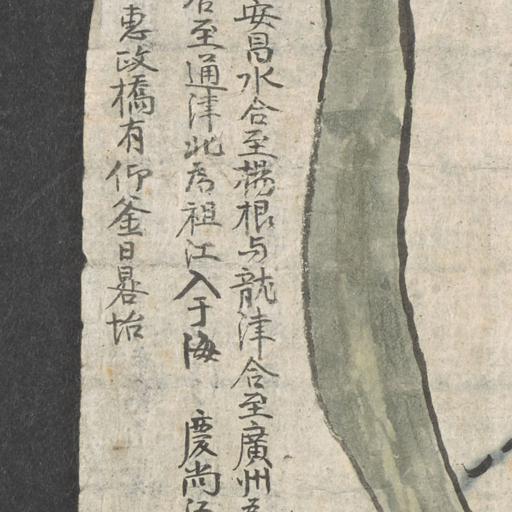 安昌水合至楊根与龍津合至廣州爲
合至通津北爲祖江入于海 慶尚江
惠政橋有仰釜日晷坮